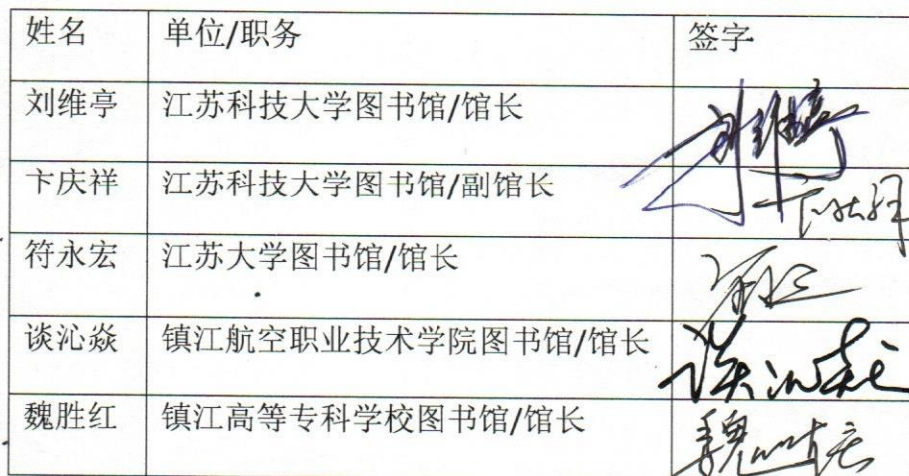 姓名 单位/职务 签字
刘维亭 江苏科技大学图书馆/馆长 刘维亭
卞庆祥 江苏科技大学图书馆/副馆长
符永宏 江苏大学图书馆/馆长
谈沁焱 镇江航空职业技术学院图书馆/馆长
魏胜红 镇江高等专科学校图书馆/馆长